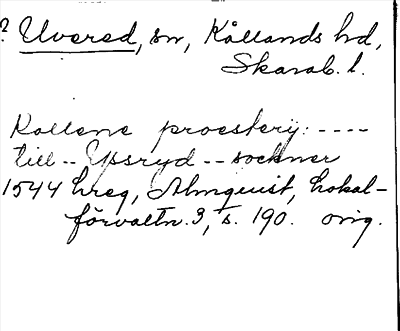 ? Uvered, sn, Kållands hd,
Skarab. l.
Kollene proestery: ----
till -- Ypsryd -- sockner
1544 hreg, Almquist, Lokal-
förvaltn. 3, s. 190. orig.